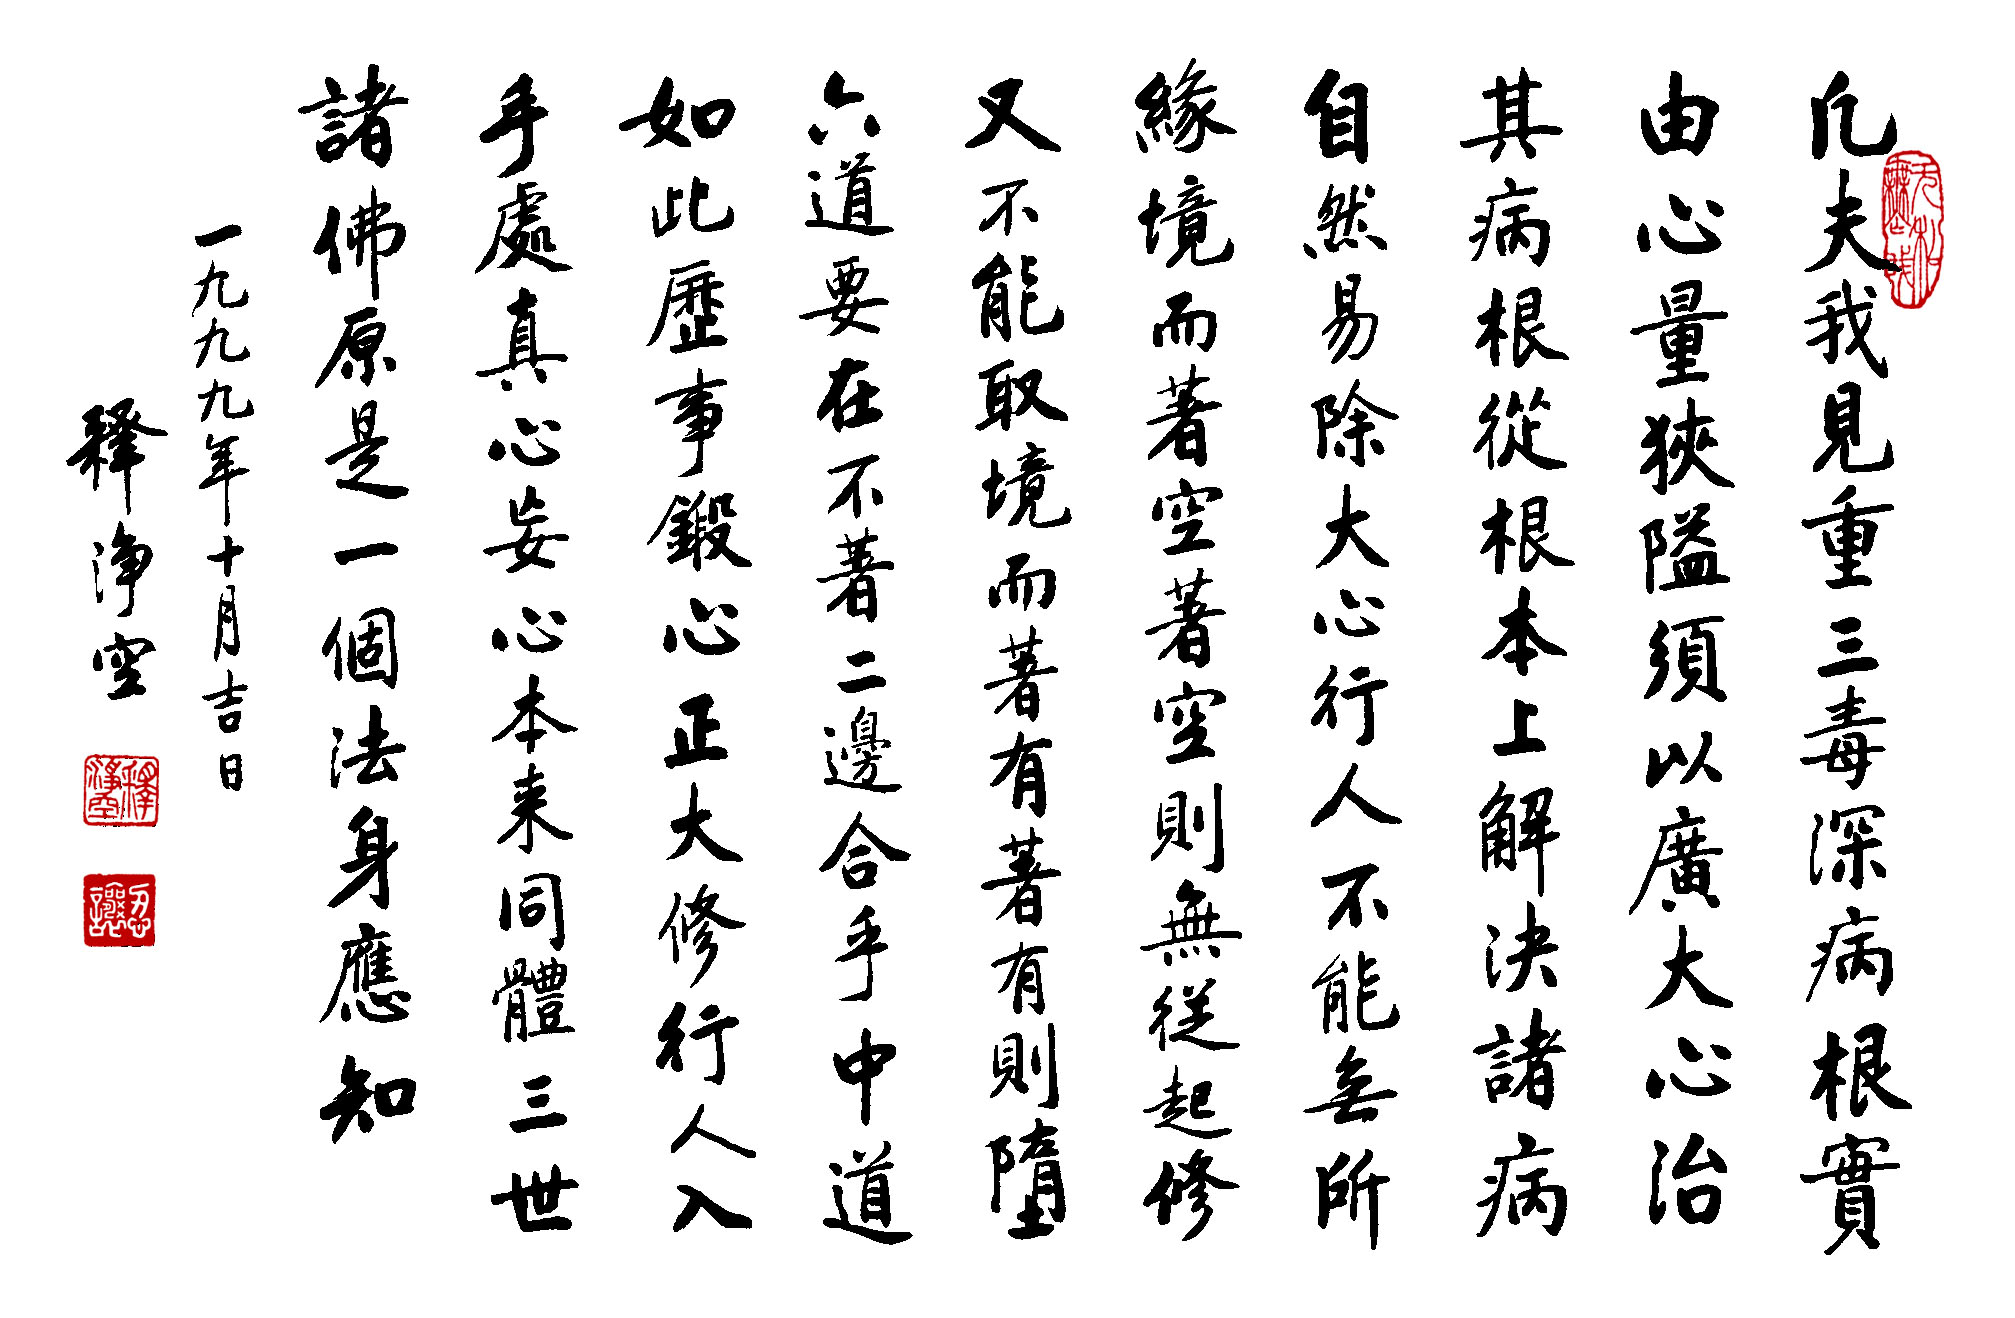 凡夫我見重三毒深病根實
由心量狹隘須以廣大心治
其病根從根本上解決諸病
自然易除大心行人不能無所
緣境而著空著空則無從起修
又不能取境而著有著有則墮
六道要在不著二邊合乎中道
如此歷事鍛心正大修行人入
手處真心妄心本来同體三世
諸佛原是一個法身應知
一九九九年十月吉日
釋淨空
釋淨空